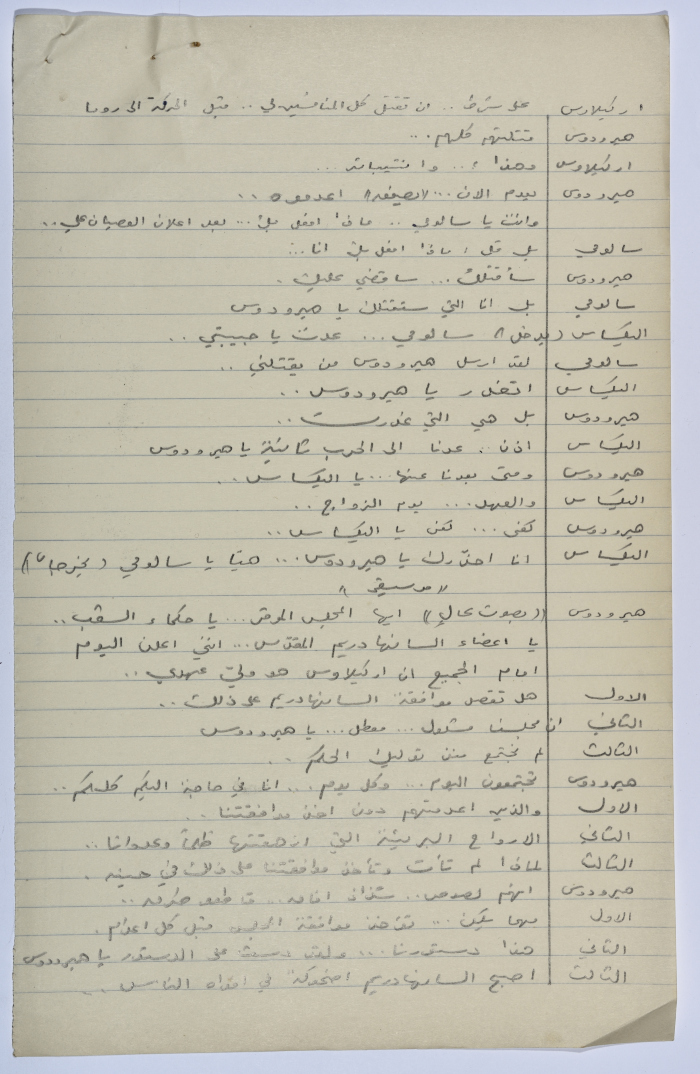 اركيلاوس على شرط .. ان تقتل كل المنافسين لي .. قبل الحركة الى روما
هيرودوس قتلتهم كلهم ...
اركيلاوس وهذا ؟ .. وانتيباتر ...
هيرودوس يعدم الان ... (لصيفه) اعدموه ..
وانت يا سالومي .. ماذا افعل بك ... بعد اعلان العصيان علي ..
سالومي بل قل ؛ ماذا افعل بك انا ..
هيرودوس سأقتلك ... سأقضي عليك .
سالومي بل انا التي ستقتلك يا هيرودوس
اليكساس (يدخل) سالومي ... عدت يا حبيبتي ..
سالومي لقد ارسل هيرودوس من يقتلني ..
اليكساس اتغدر يا هيرودوس ..
هيرودوس بل هي التي غدرت ..
اليكساس اذن .. عدنا الى الحرب ثانية يا هيرودوس
هيرودوس ومتى بعدنا عنها ... يا اليكساس ..
اليكساس والعهد ... يوم الزواج ..
هيرودوس كفى ... كفى يا اليكساس ..
اليكساس انا احذّرك يا هيرودوس ... هيّا يا سالومي (يخرجان)
"موسيقى"
هيرودوس ((بصوت عالٍ)) ايها المجلس الموقر ... يا حكماء الشعب ..
يا اعضاء السانهادريم المقدّس ... انني اعلن اليوم
امام الجميع ان اركيلاوس هو وليّ عهدي ..
الاول هل تقصد موافقة السانهادريم على ذلك ..
الثاني ان مجلسنا مشلول ... معطل ... يا هيرودوس
الثالث لم نجتمع منذ توليك الحكم ..
هيرودوس تجتمعون اليوم ... وكل يوم ... انا في حاجة اليكم كلكم ..
الاول والذين اعدمتهم دون اخذ موافقتنا ..
الثاني الارواح البريئة التي ازهقتها ظلماً وعدوانا ..
الثالث لماذا لم تأت وتأخذ موافقتنا على ذلك في حينه .
هيرودوس انهم لصوص .. شذاذ افاق .. قاطعو طرق ..
الاول مهما يكن ... تؤخذ موافقة المجلس قبل كل اعدام .
الثاني هذا دستورنا ... ولقد دست على الدستور يا هيرودوس
الثالث اصبح السانهادريم اضحوكة في افواه الناس ..